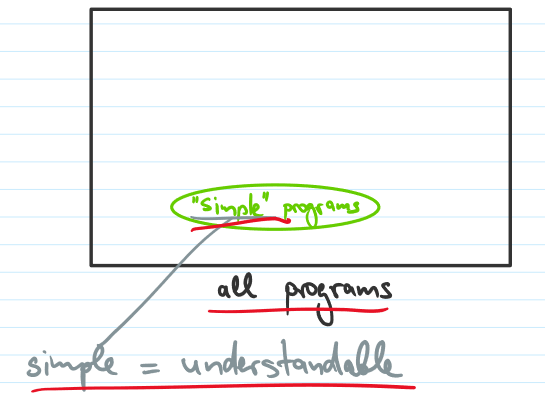 "Simple" programs
all programs
simple = understandable